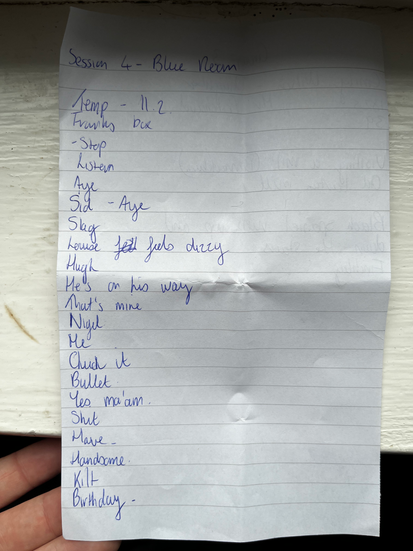 Session 4 - Blue Room
Temp - 11.2
Franks box
- Stop
Listen
Aye
Sid - Aye
Slag
Louise feels dizzy
Hugh
He's on his way
That's mine
Nigel
Me
Chuck it
Bullet
Yes ma'am.
Shit
Move -
Handsome
Kilt
Birthday -